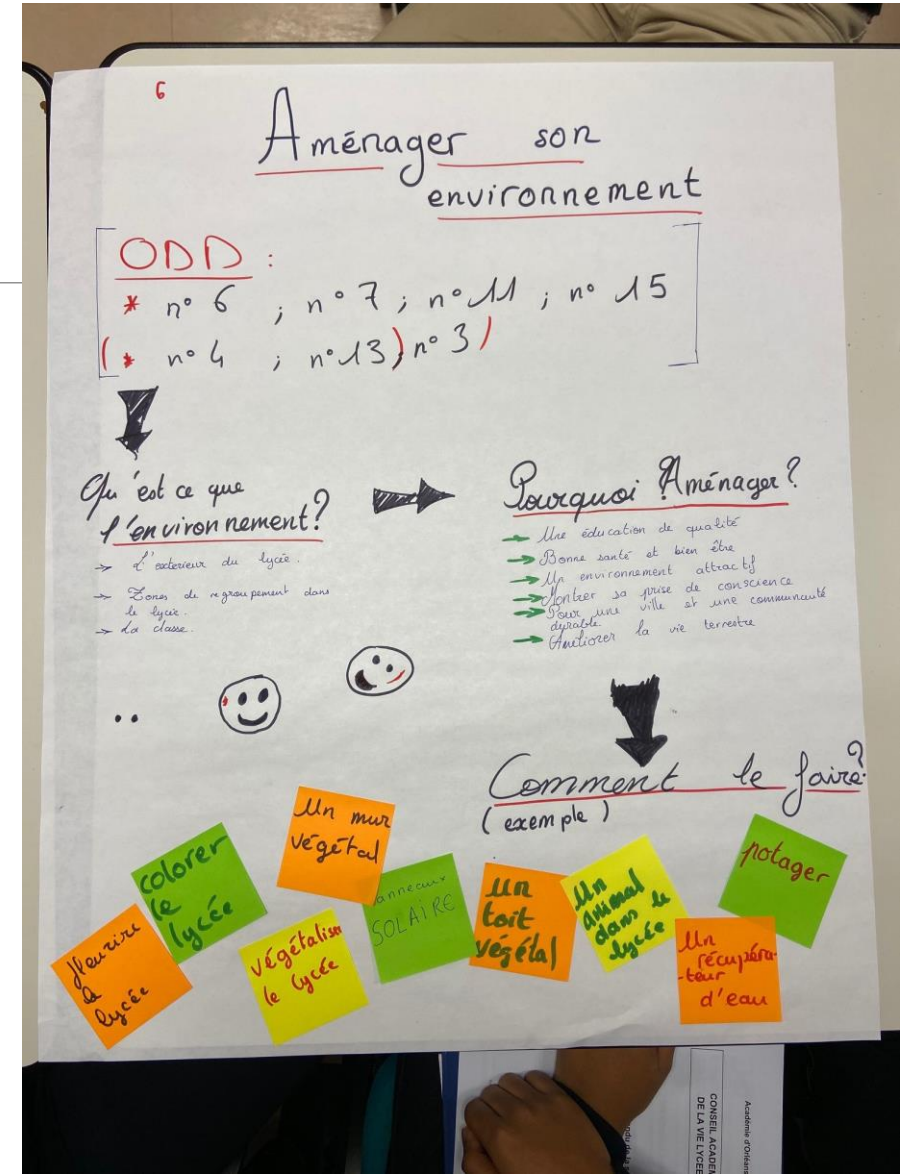 6
Aménager son
environnement
ODD :
* n° 6 ; n° 7 ; n° 11 ; n° 15
(* n° 4 ; n° 13) n° 3)
Qu'est ce que
l'environnement?
→ L'exterieur du lycée.
→ Zones de regroupement dans
le lycée.
→ La classe.
Pourquoi Aménager?
→ Une éducation de qualité
→ Bonne santé et bien être
→ Un environnement attractif
→ Montrer sa prise de conscience
→ Pour une ville et une communauté
durable
→ Améliorer la vie terrestre
Comment le faire?
(exemple)
fleurire
le
lycée
colorer
le
lycée
Un mur
végétal
végétaliser
le lycée
anneaux
SOLAIRE
Un
toit
végétal
Un
animal
dans le
lycée
Un
récupéra-
-teur
d'eau
potager
Académie d'Orléans
CONSEIL ACADEM
DE LA VIE LYCEE